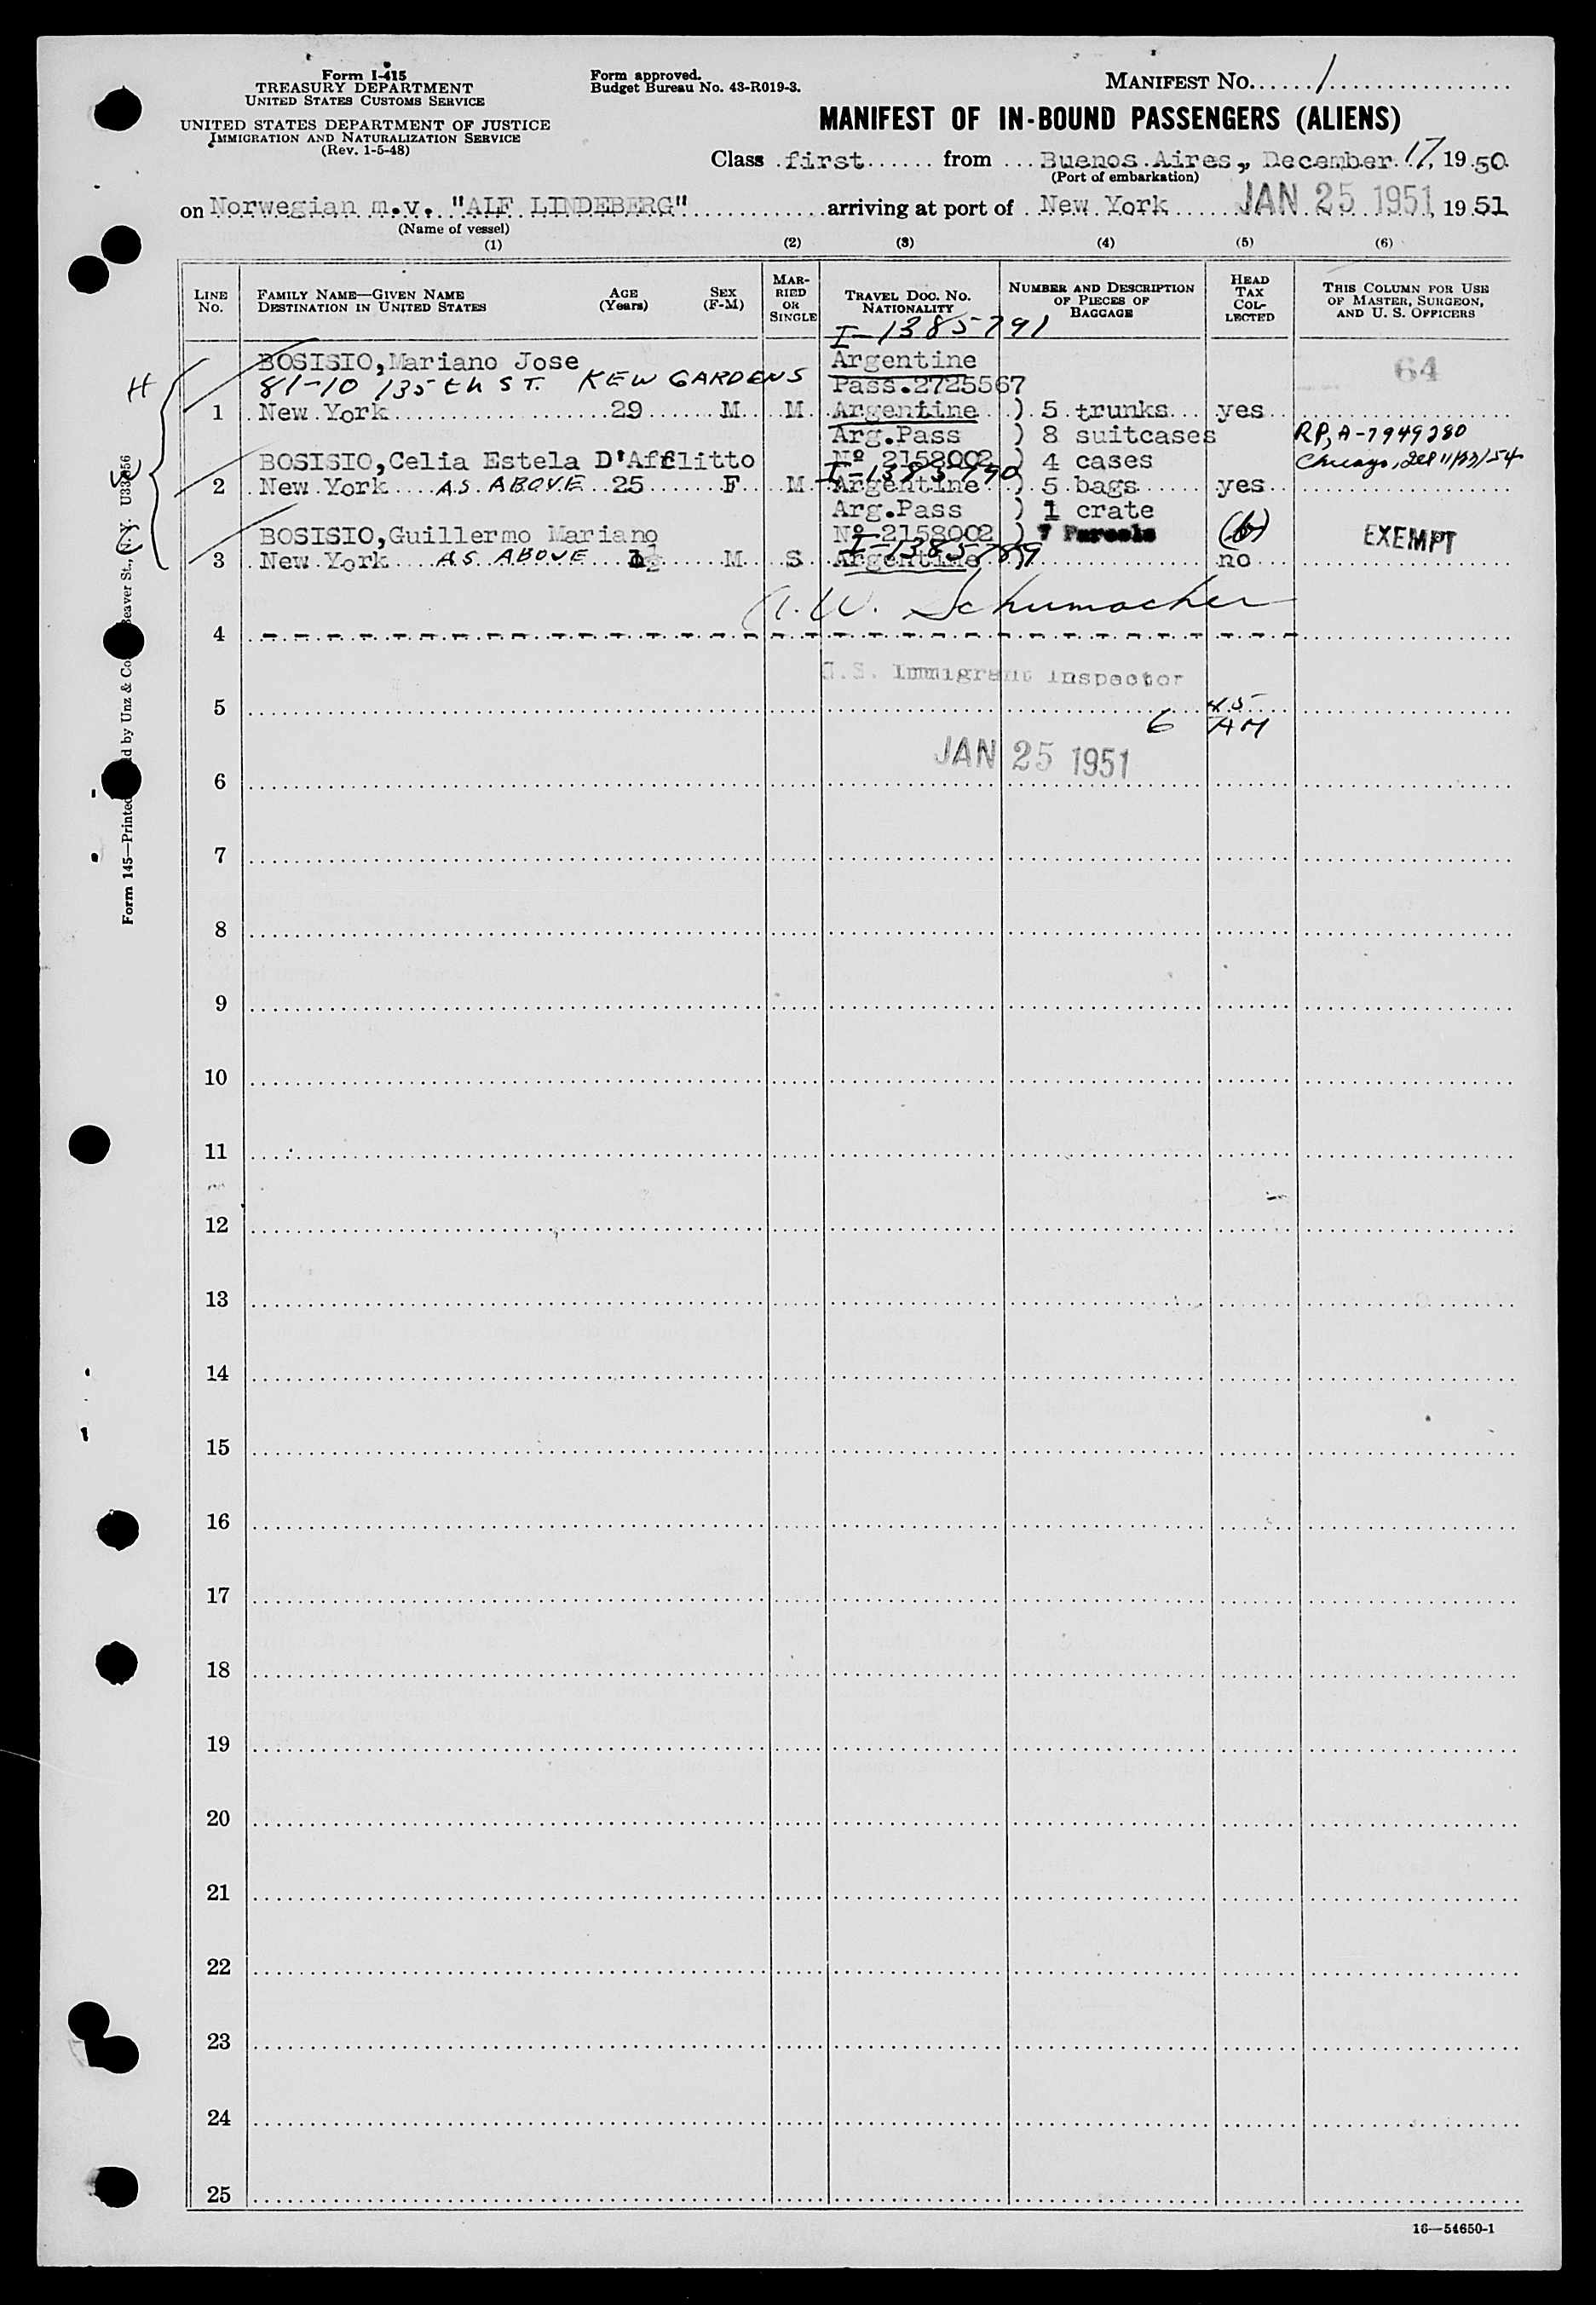 Form I-415
TREASURY DEPARTMENT
UNITED STATES CUSTOMS SERVICE
UNITED STATES DEPARTMENT OF JUSTICE
IMMIGRATION AND NATURALIZATION SERVICE
(Rev. 1-5-48)
Form approved.
Budget Bureau No. 43-R019-3.
MANIFEST NO. 1
MANIFEST OF IN-BOUND PASSENGERS (ALIENS)
Class first from Buenos Aires, December 17, 19 50
(Port of embarkation)
on Norwegian m.v. "ALF LINDEBERG" arriving at port of New York JAN 25 1951, 19 51
(Name of vessel)
(1) (2) (3) (4) (5) (6)
LINE NO.
FAMILY NAME—GIVEN NAME
DESTINATION IN UNITED STATES
AGE (Years)
SEX (F-M)
MARRIED OR SINGLE
TRAVEL DOC. NO. NATIONALITY
NUMBER AND DESCRIPTION OF PIECES OF BAGGAGE
HEAD TAX COLLECTED
THIS COLUMN FOR USE OF MASTER, SURGEON, AND U. S. OFFICERS
I-1385791
BOSISIO, Mariano Jose Argentine 64
81-10 135th ST. KEW GARDENS Pass.2725567
1 New York 29 M M Argentine ) 5 trunks yes
Arg.Pass ) 8 suitcases RP, A-7949280
BOSISIO, Celia Estela D'Afflitto Nº 2158002 ) 4 cases Chicago, Ill 11/23/54
I-1385790
2 New York AS ABOVE 25 F M Argentine ) 5 bags yes
Arg.Pass ) 1 crate
BOSISIO, Guillermo Mariano Nº 2158002 ) 7 Parcels (b) EXEMPT
I-1385789
3 New York AS ABOVE 1½ M S Argentine no
H
Schumacher
4
U.S. Immigrant Inspector
5
6 45 AM
JAN 25 1951
6
7
8
9
10
11
12
13
14
15
16
17
18
19
20
21
22
23
24
25
Form 145—Printed by Unz & Co Beaver St., N.Y.
16—54650-1